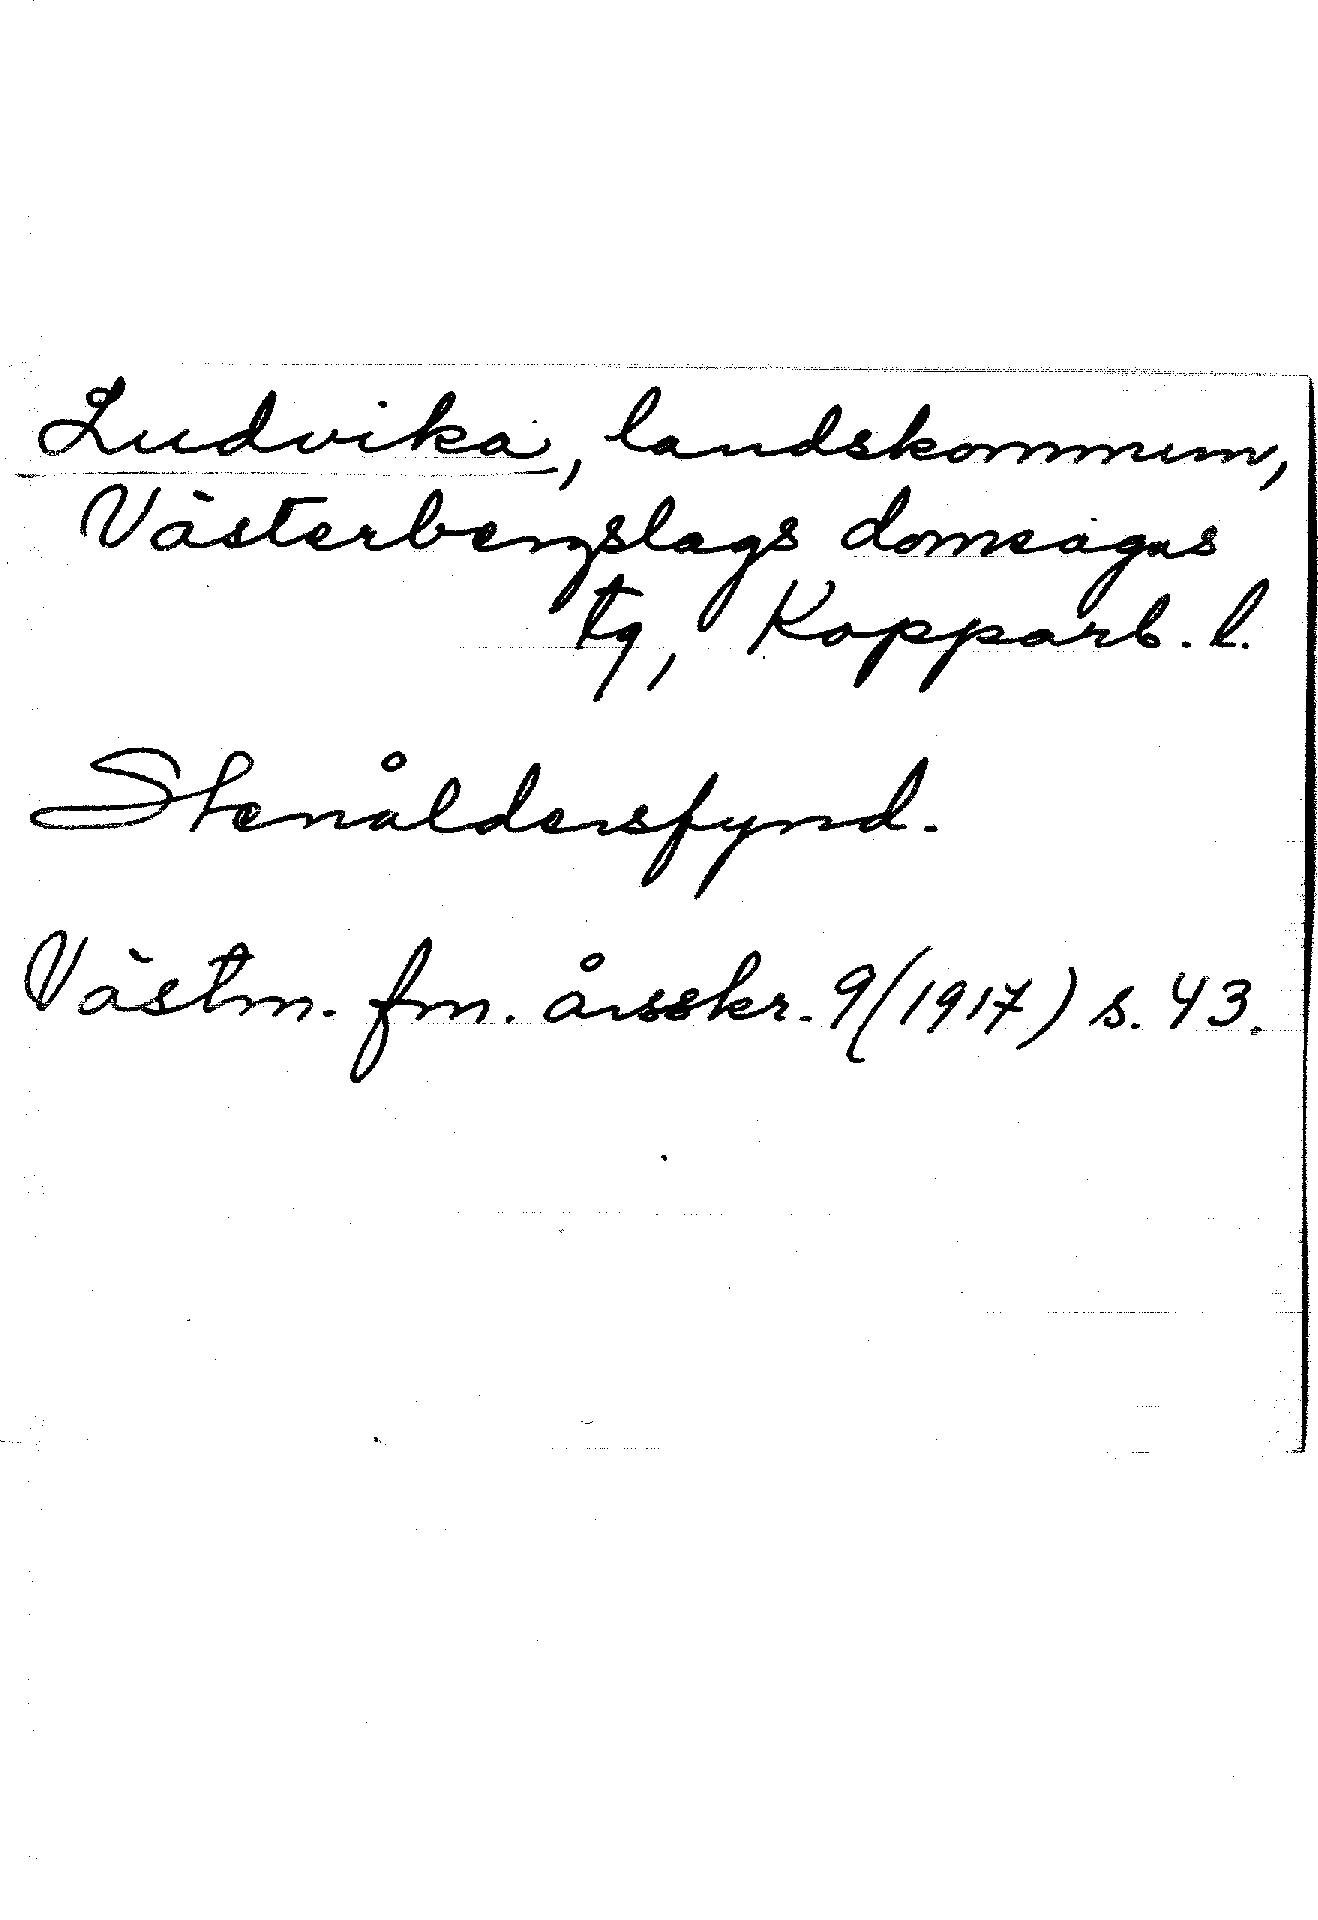 Ludvika, landskommun,
Västerbergslags domsagas
tg, Kopparb. l.
Stenåldersfynd.
Västm. fm. årsskr. 9(1917) s. 43.